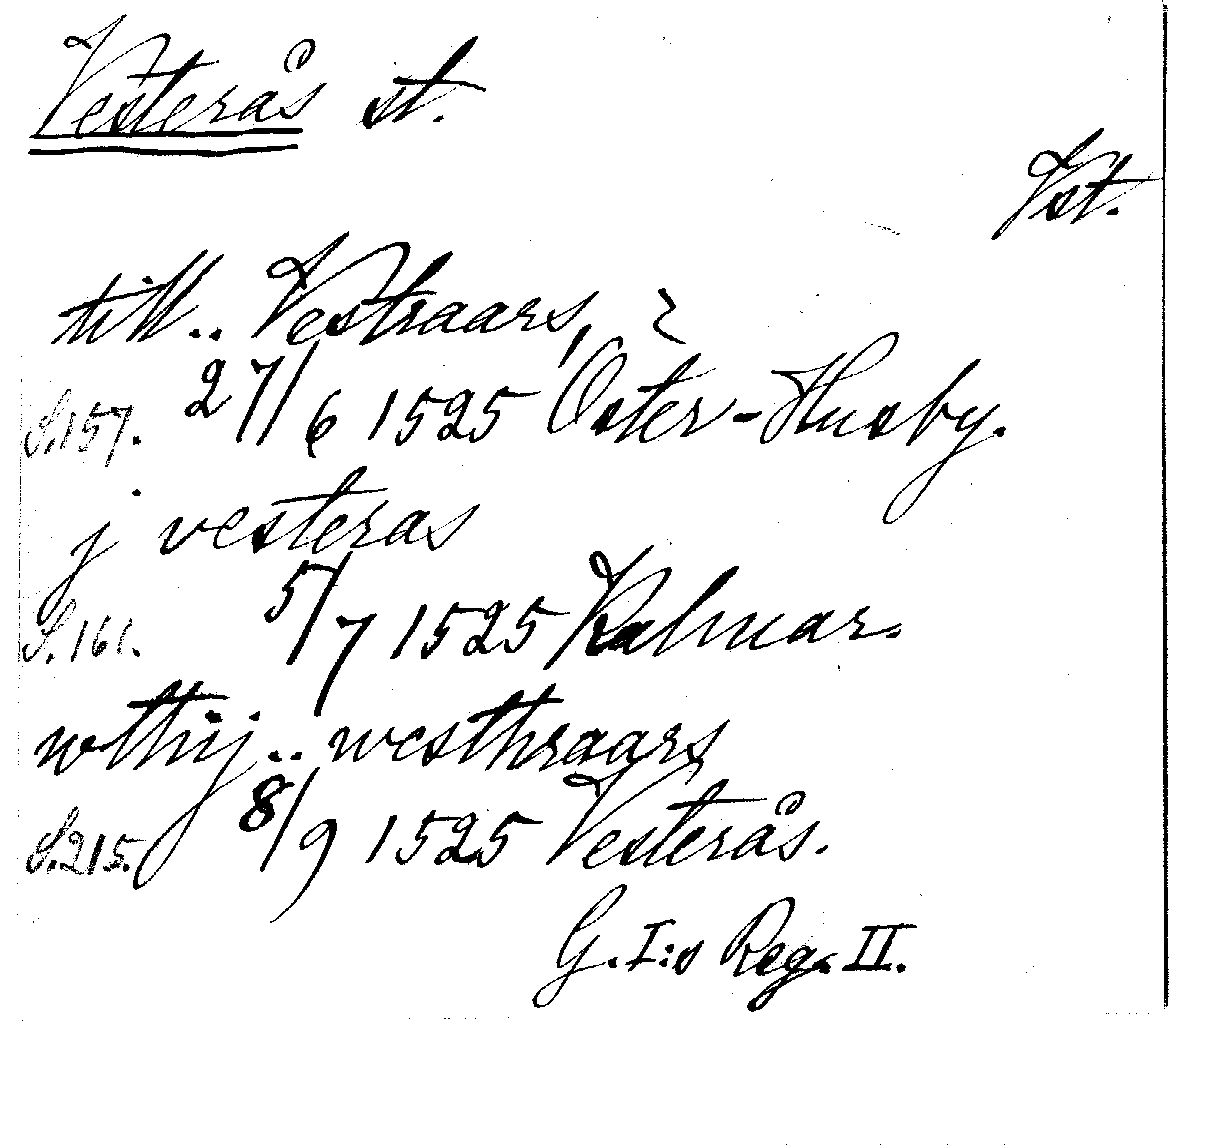 Vesterås st.
Vst.
till.. Vestraars,
S.157. 27/6 1525 Öster-Husby.
j vesteras
S.161. 5/7 1525 Kalmar.
wthij.. westhraars
S.215. 8/9 1525 Vesterås.
G. I:s Reg. II.